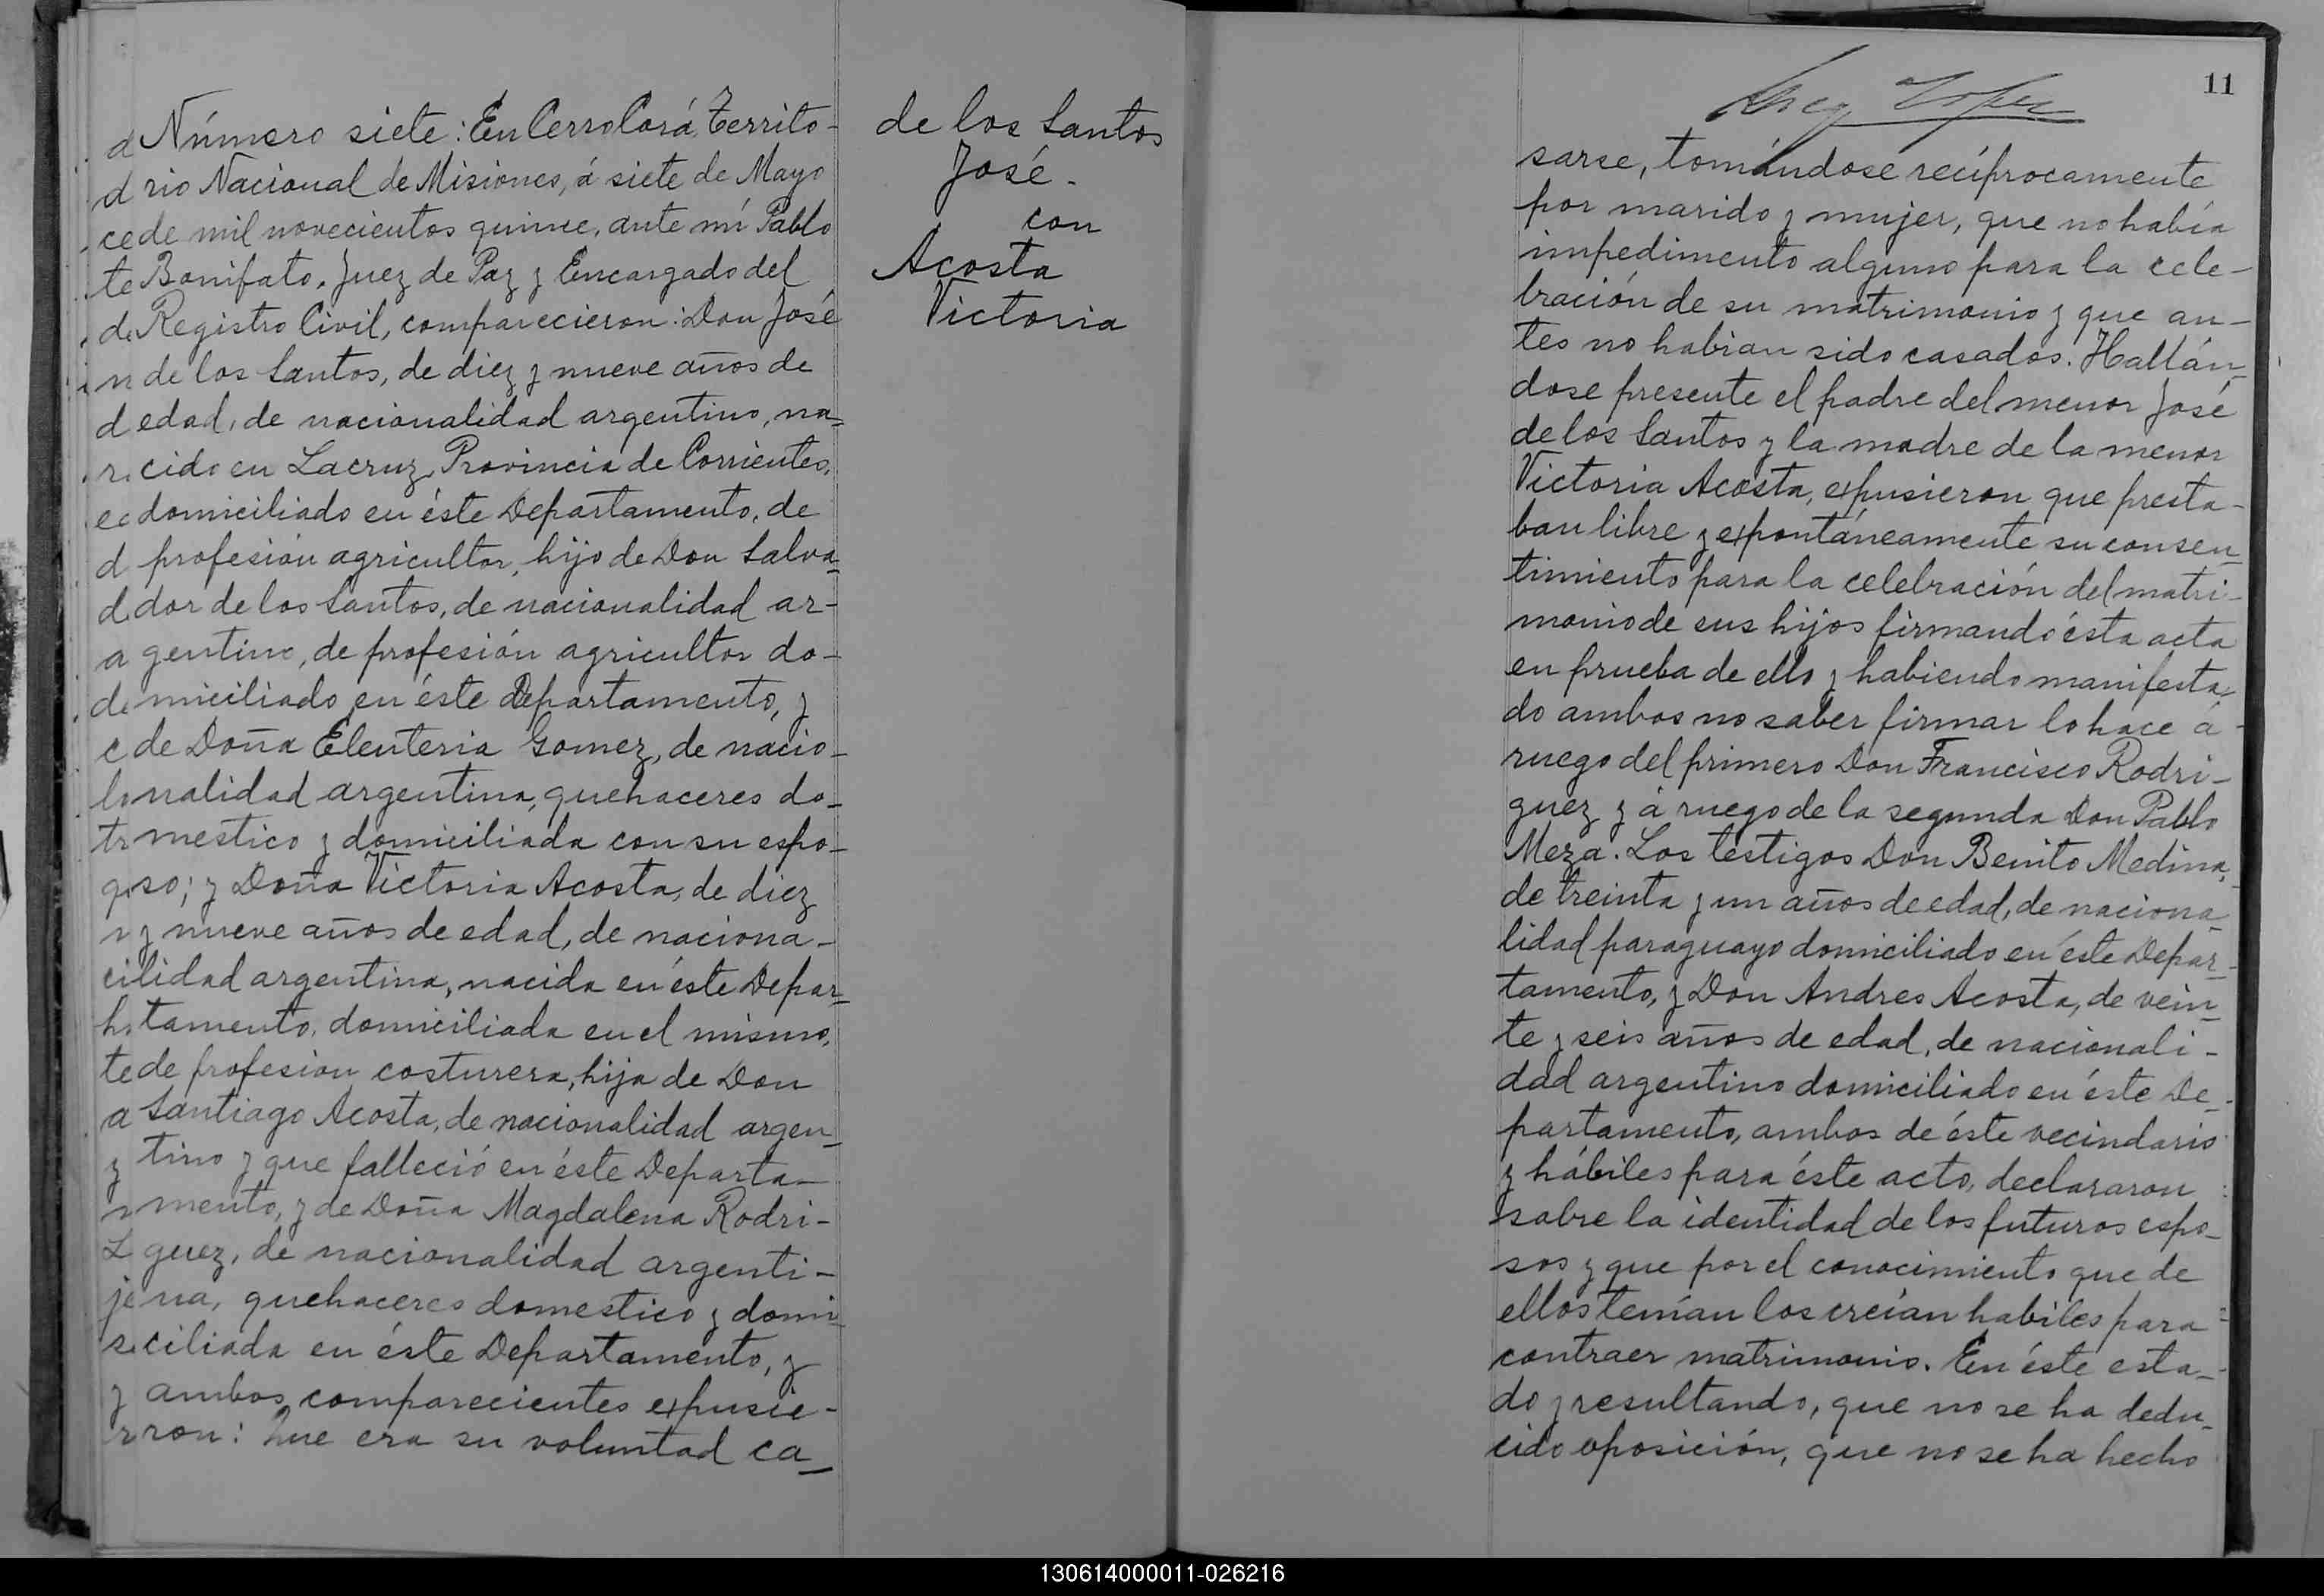 Número siete: En Cerro Corá, Territo-
rio Nacional de Misiones, á siete de Mayo
de mil novecientos quince, ante mí Pablo
Bonifato, Juez de Paz y Encargado del
Registro Civil, comparecieron: Don José
de los Santos, de diez y nueve años de
edad, de nacionalidad argentino, na-
cido en Lacruz, Provincia de Corrientes,
domiciliado en éste Departamento, de
profesión agricultor, hijo de Don Salva-
dor de los Santos, de nacionalidad ar-
gentino, de profesión agricultor do-
miciliado en éste Departamento, y
de Doña Eleuteria Gomez, de nacio-
nalidad argentina, quehaceres do-
mestico y domiciliada con su espo-
so; y Doña Victoria Acosta, de diez
y nueve años de edad, de naciona-
lidad argentina, nacida en éste Depar-
tamento, domiciliada en el mismo,
de profesion costurera, hija de Don
Santiago Acosta, de nacionalidad argen-
tino y que falleció en éste Departa-
mento, y de Doña Magdalena Rodri-
guez, de nacionalidad argenti-
na, quehaceres domestico y domi-
ciliada en éste Departamento, y
ambos comparecientes expusie-
ron: Que era su voluntad ca-
de los Santos
José.
con
Acosta
Victoria
11
sarse, tomándose recíprocamente
por marido y mujer, que no había
impedimento alguno para la cele-
bración de su matrimonio y que an-
tes no habian sido casados. Hallán-
dose presente el padre del menor José
de los Santos y la madre de la menor
Victoria Acosta, expusieron que presta-
ban libre y expontáneamente su consen-
timiento para la celebración del matri-
monio de sus hijos firmando ésta acta
en prueba de ello y habiendo manifesta-
do ambos no saber firmar lo hace á
ruego del primero Don Francisco Rodri-
guez y á ruego de la segunda Don Pablo
Meza. Los testigos Don Benito Medina,
de treinta y un años de edad, de naciona-
lidad paraguayo domiciliado en éste Depar-
tamento, y Don Andres Acosta, de vein-
te y seis años de edad, de nacionali-
dad argentino domiciliado en éste De-
partamento, ambos de éste vecindario
y hábiles para éste acto, declararon
sobre la identidad de los futuros espo-
sos y que por el conocimiento que de
ellos tenían los creían habiles para
contraer matrimonio. En éste esta-
do y resultando, que no se ha dedu-
cido oposición, que no se ha hecho
130614000011-026216